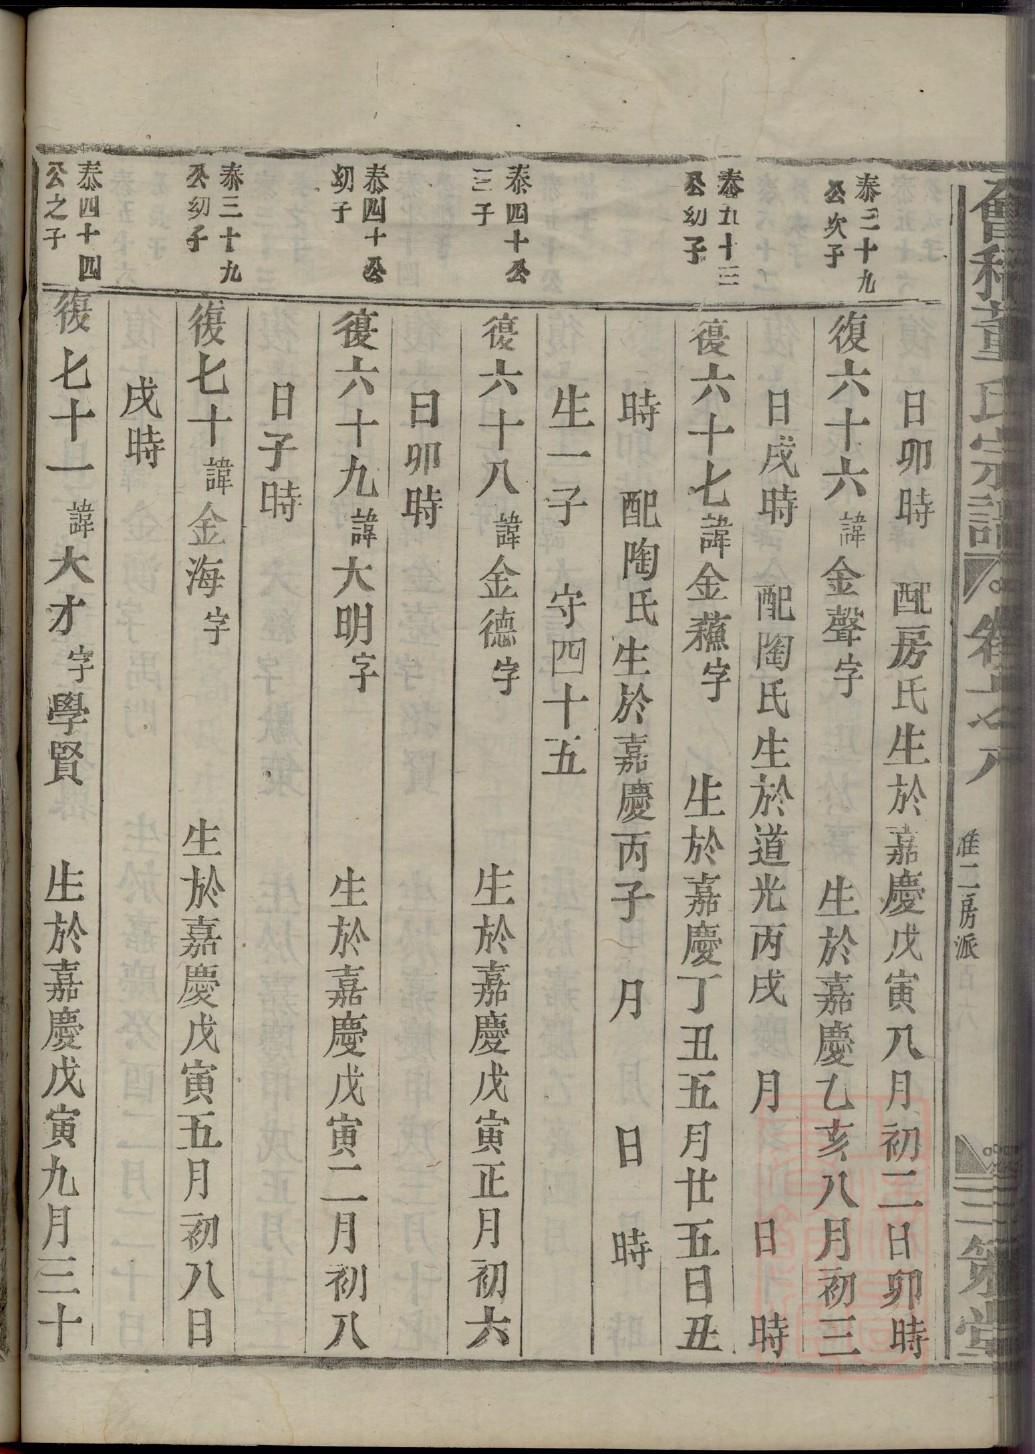 會稽董氏宗譜
卷十之八
淮二房派
三策堂
日卯時 配房氏生於嘉慶戊寅八月初二日卯時
泰三十九
公次子
復六十六諱金聲字 生於嘉慶乙亥八月初三
日戌時 配陶氏生於道光丙戌 月 日 時
泰五十三
公幼子
復六十七諱金蘓字 生於嘉慶丁丑五月廿五日丑
時 配陶氏生於嘉慶丙子 月 日 時
生一子 守四十五
泰四十公
三子
復六十八諱金德字 生於嘉慶戊寅正月初六
日卯時
泰四十公
幼子
復六十九諱大明字 生於嘉慶戊寅二月初八
日子時
泰三十九
公幼子
復七十諱金海字 生於嘉慶戊寅五月初八日
戌時
泰四十四
公之子
復七十一諱大才字學賢 生於嘉慶戊寅九月三十